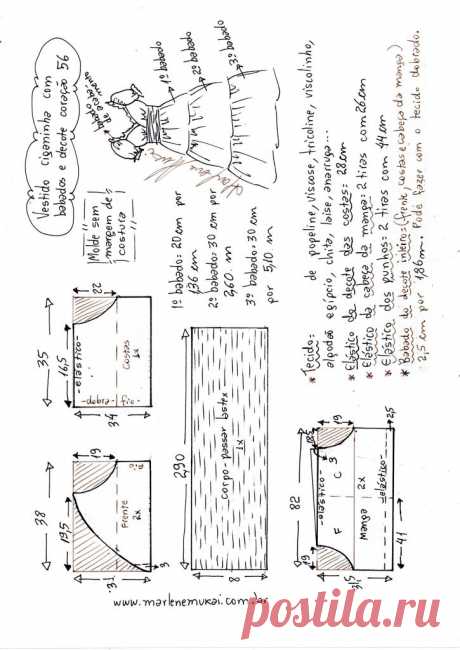 Vestido ciganinha com
babados e decote coração 56
Molde sem
margem de
costura
babado
de acaba
mento
1º babado
2º babado
3º babado
1º babado: 20 cm por
1,36 cm
2º babado: 30 cm por
2,60 m
3º babado: 30 cm
por 5,10 m
* Tecido: de popeline, viscose, tricoline, viscolinho,
algodão egípcio, chita, laise, anarruga...
* Elástico do decote das costas: 28 cm
* Elástico da cabeça da manga: 2 tiras com 26 cm
* Elástico dos punhos: 2 tiras com 44 cm
* Babado do decote inteiro: (frente, costas e cabeça da manga)
2,5 cm por 1,86 m. Pode fazer com o tecido dobrado.
35
16,5
22
-elástico-
Costas
1x
-dobra-fio-
34
38
19,5
19
Frente
2x
fio
31
3
290
Corpo-passar lastex
1x
8
82
19
-elástico-
F
C
Manga
2x
-elástico-
2,5
41
19
31,5
www.marlenemukai.com.br
postila.ru